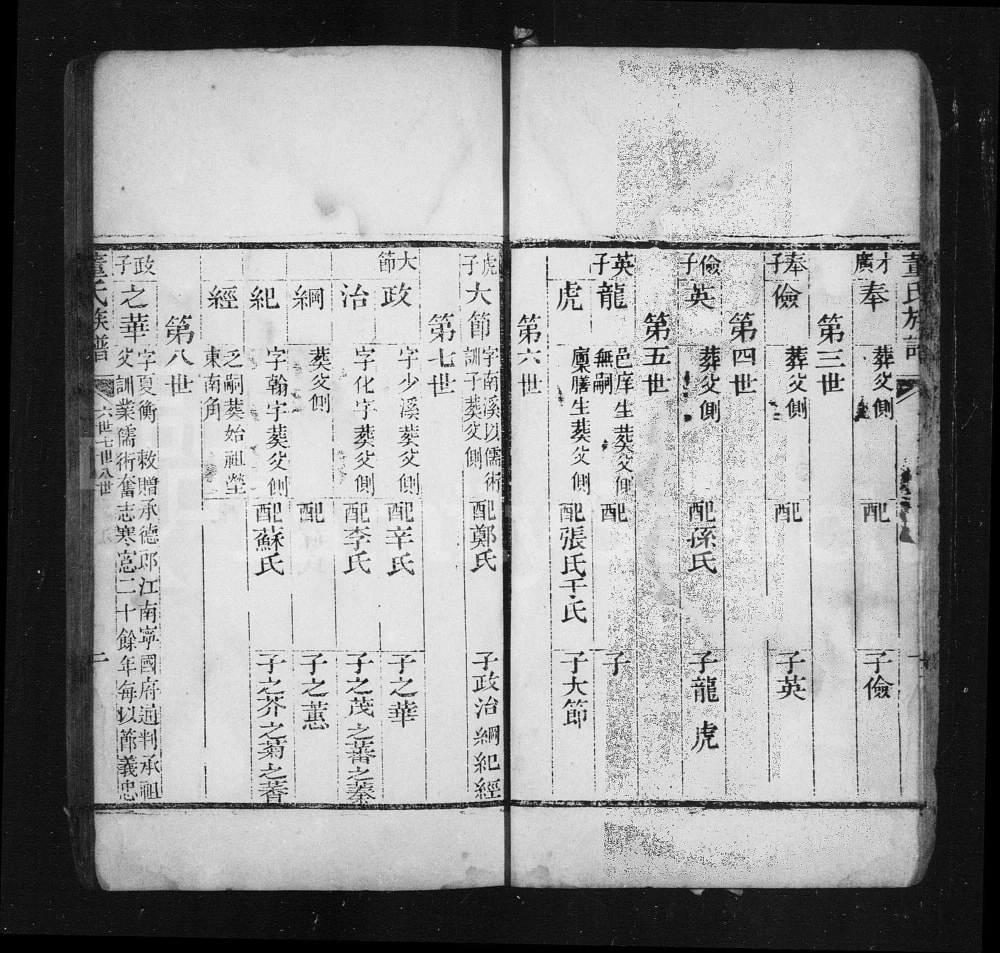 董氏族譜
才廣 奉 葬父側 配 子儉
第三世
奉子 儉 葬父側 配 子英
第四世
儉子 英 葬父側 配孫氏 子龍 虎
第五世
英子 龍 邑庠生葬父側無嗣 配 子
虎 廩膳生葬父側 配張氏于氏 子大節
第六世
虎子 大節 字南溪以儒術訓子葬父側 配鄭氏 子政治綱紀經
第七世
大節 政 字少溪葬父側 配辛氏 子之華
治 字化宇葬父側 配李氏 子之茂之蕃之蓁
綱 葬父側 配 子之蕙
紀 字翰宇葬父側 配蘇氏 子之芥之菊之蓍
經 乏嗣葬始祖塋東南角
第八世
政子 之華 字夏衡 敕贈承德郎江南寧國府通判承祖
父訓業儒術奮志寒窓二十餘年每以節義忠
董氏族譜 六世七世八世 一